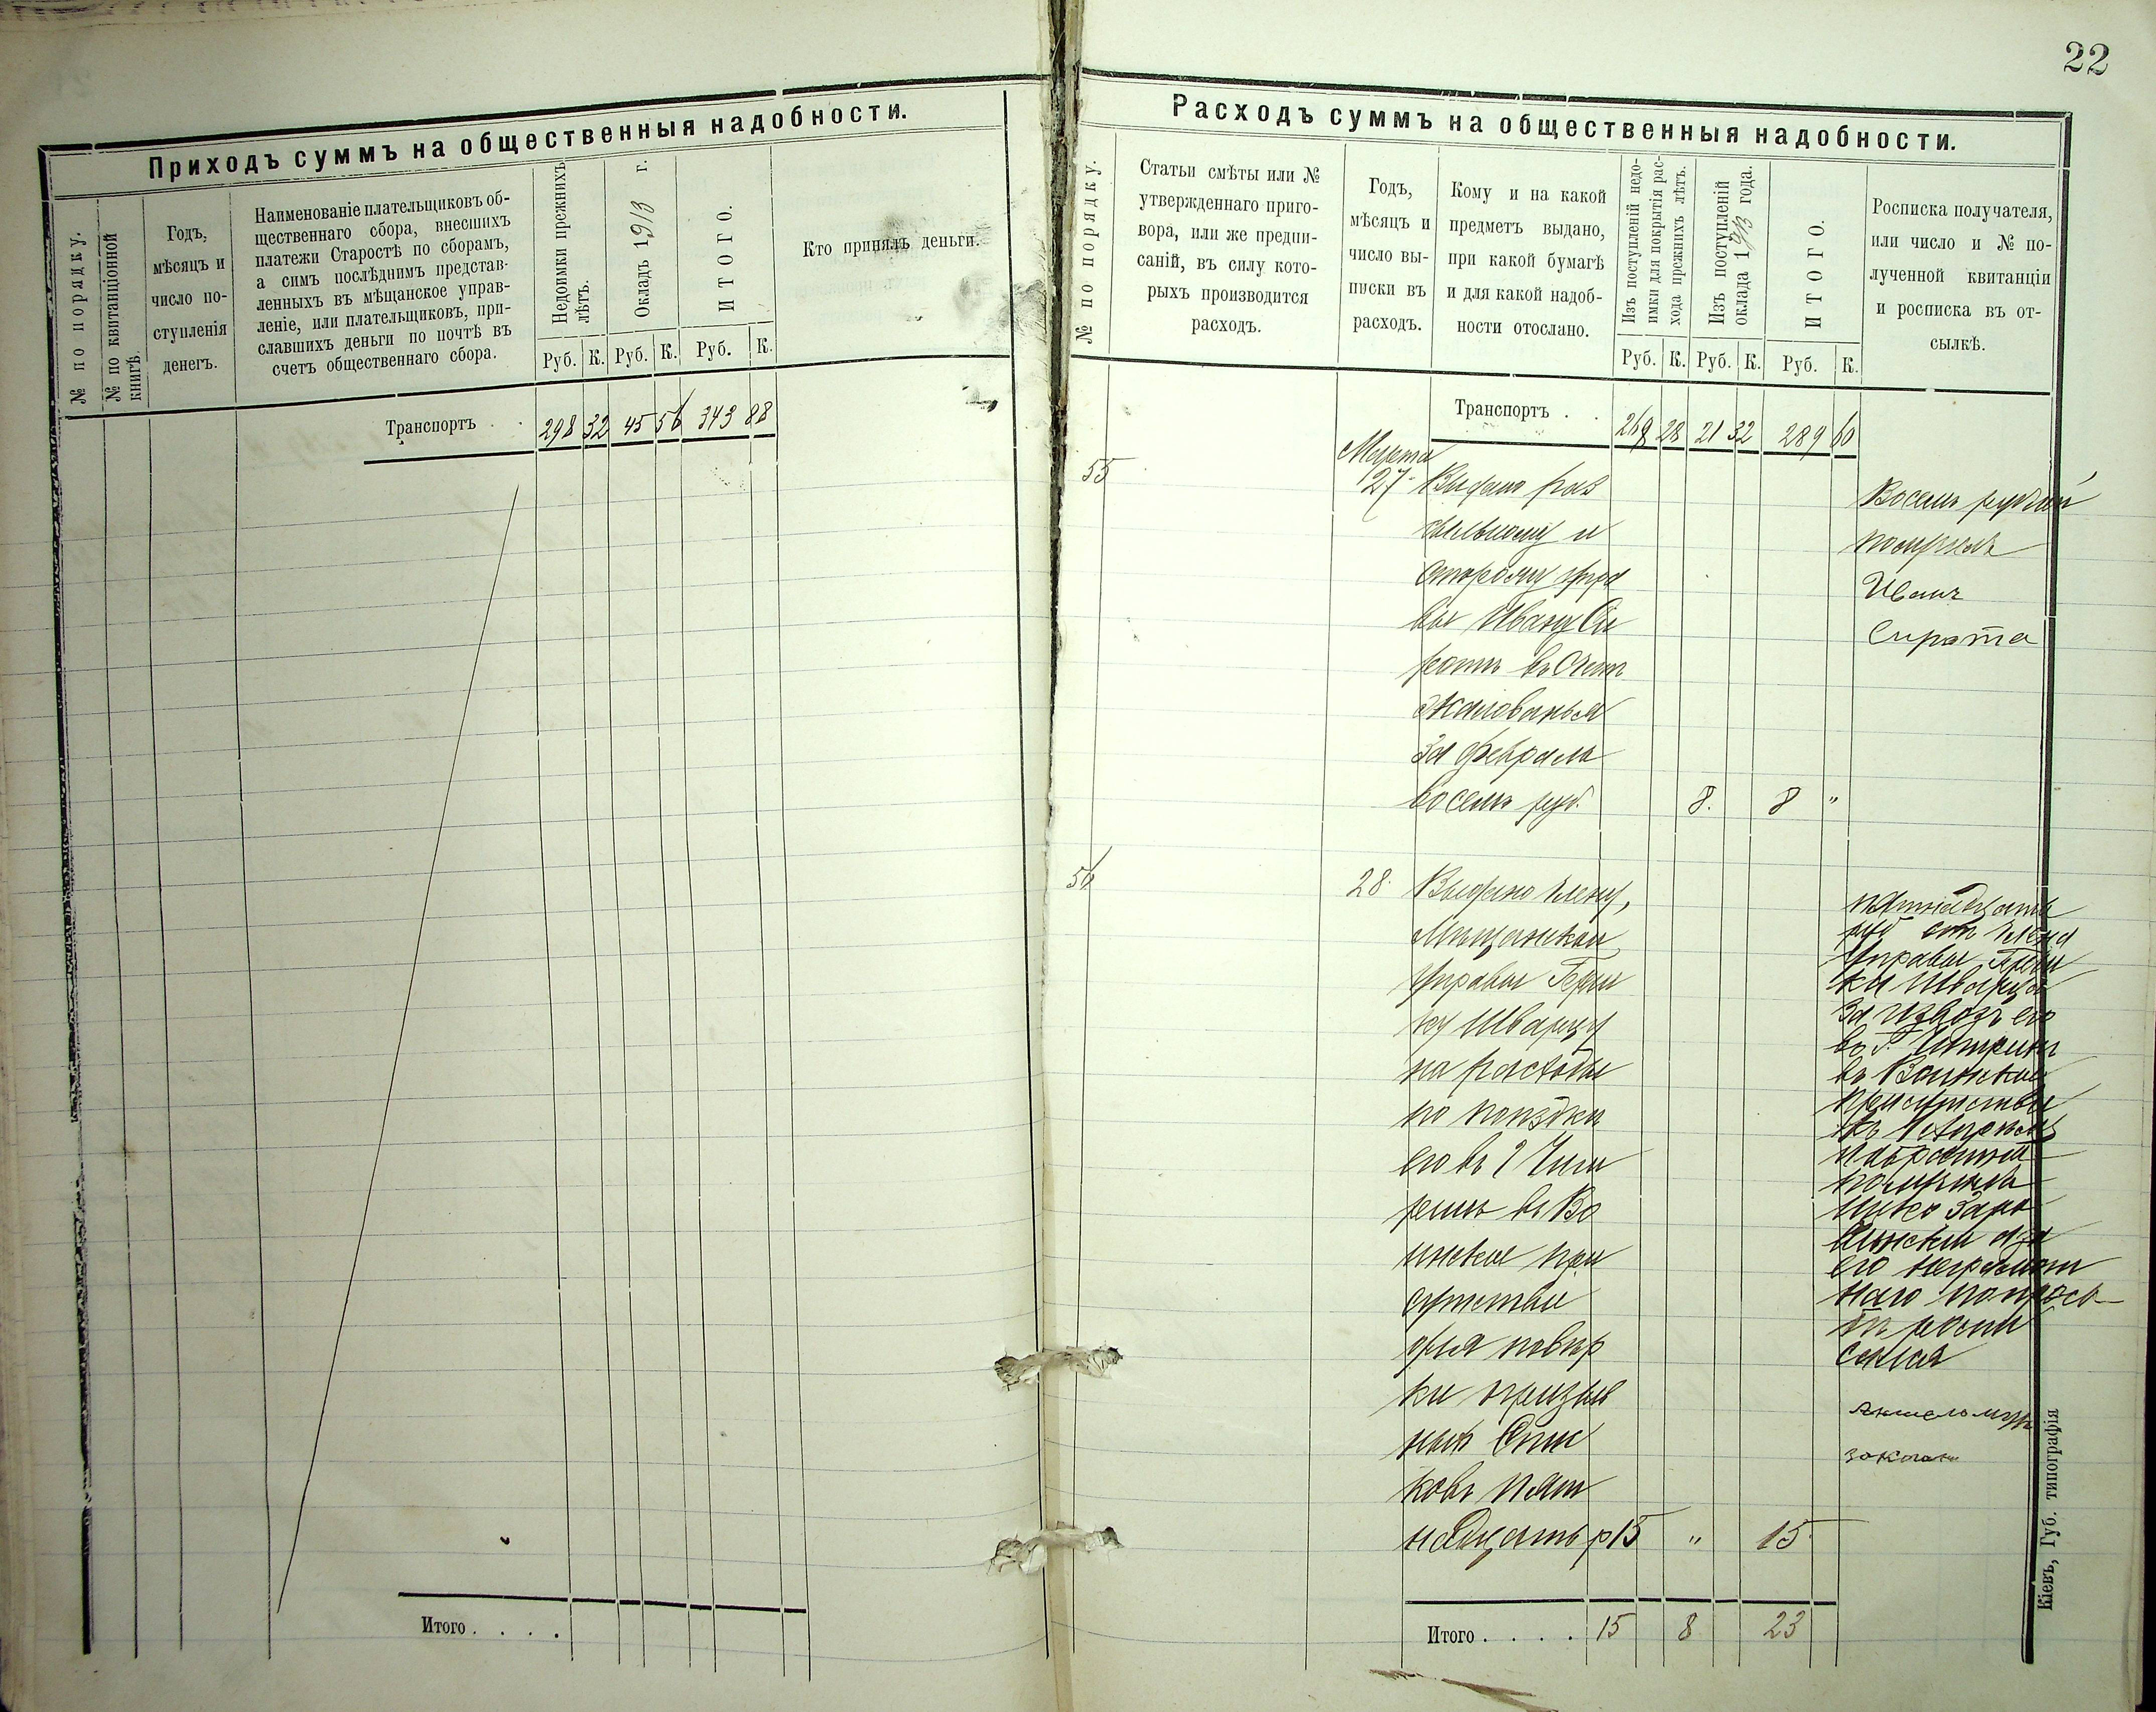 22
Приходъ суммъ на общественныя надобности.
№ по порядку.
№ по квитанціонной
книгѣ.
Годъ,
мѣсяцъ и
число по-
ступленія
денегъ.
Наименованіе плательщиковъ об-
щественнаго сбора, внесшихъ
платежи Старостѣ по сборамъ,
а симъ послѣднимъ представ-
ленныхъ въ мѣщанское управ-
леніе, или плательщиковъ, при-
славшихъ деньги по почтѣ въ
счетъ общественнаго сбора.
Недоимки прежнихъ
лѣтъ.
Окладъ 1913 г.
ИТОГО.
Руб. К. Руб. К. Руб. К.
Кто принялъ деньги.
Транспортъ . . 298 32 45 56 343 88
Итого . . . .
Расходъ суммъ на общественныя надобности.
№ по порядку.
Статьи смѣты или №
утвержденнаго приго-
вора, или же предпи-
саній, въ силу кото-
рыхъ производится
расходъ.
Годъ,
мѣсяцъ и
число вы-
писки въ
расходъ.
Кому и на какой
предметъ выдано,
при какой бумагѣ
и для какой надоб-
ности отослано.
Изъ поступленій недо-
имки для покрытія рас-
хода прежнихъ лѣтъ.
Изъ поступленій
оклада 1913 года.
ИТОГО.
Руб. К. Руб. К. Руб. К.
Росписка получателя,
или число и № по-
лученной квитанціи
и росписка въ от-
сылкѣ.
Транспортъ . . 268 28 21 32 289 60
55
Марта
27 Выдано раз
сыльному и
сторожу упра
вы Ивану Си
роть въ счетъ
жалованья
за февраль
восемь руб. 8. 8 "
Восемь рублей
получилъ
Иванъ
Сирота
56
28 Выдано члену
Мещанской
Управы Герш
ку Шварцу
на расходы
по поездки
его въ г Чиги
ринъ въ Во
инское при
сутствіе
для повѣр
ки призыв
ныхъ Спис
ковъ пят
надцать р 15 " 15
пятнадцать
руб членъ
Управы Герш
ко Шварцъ
за
его
въ г. Чигиринъ
въ Воинское
присутствіе
получилъ
а за
его неграмот
наго по прось
бѣ роспи
сался
Итого . . . . 15 8 23
Кіевъ, Губ. типографія